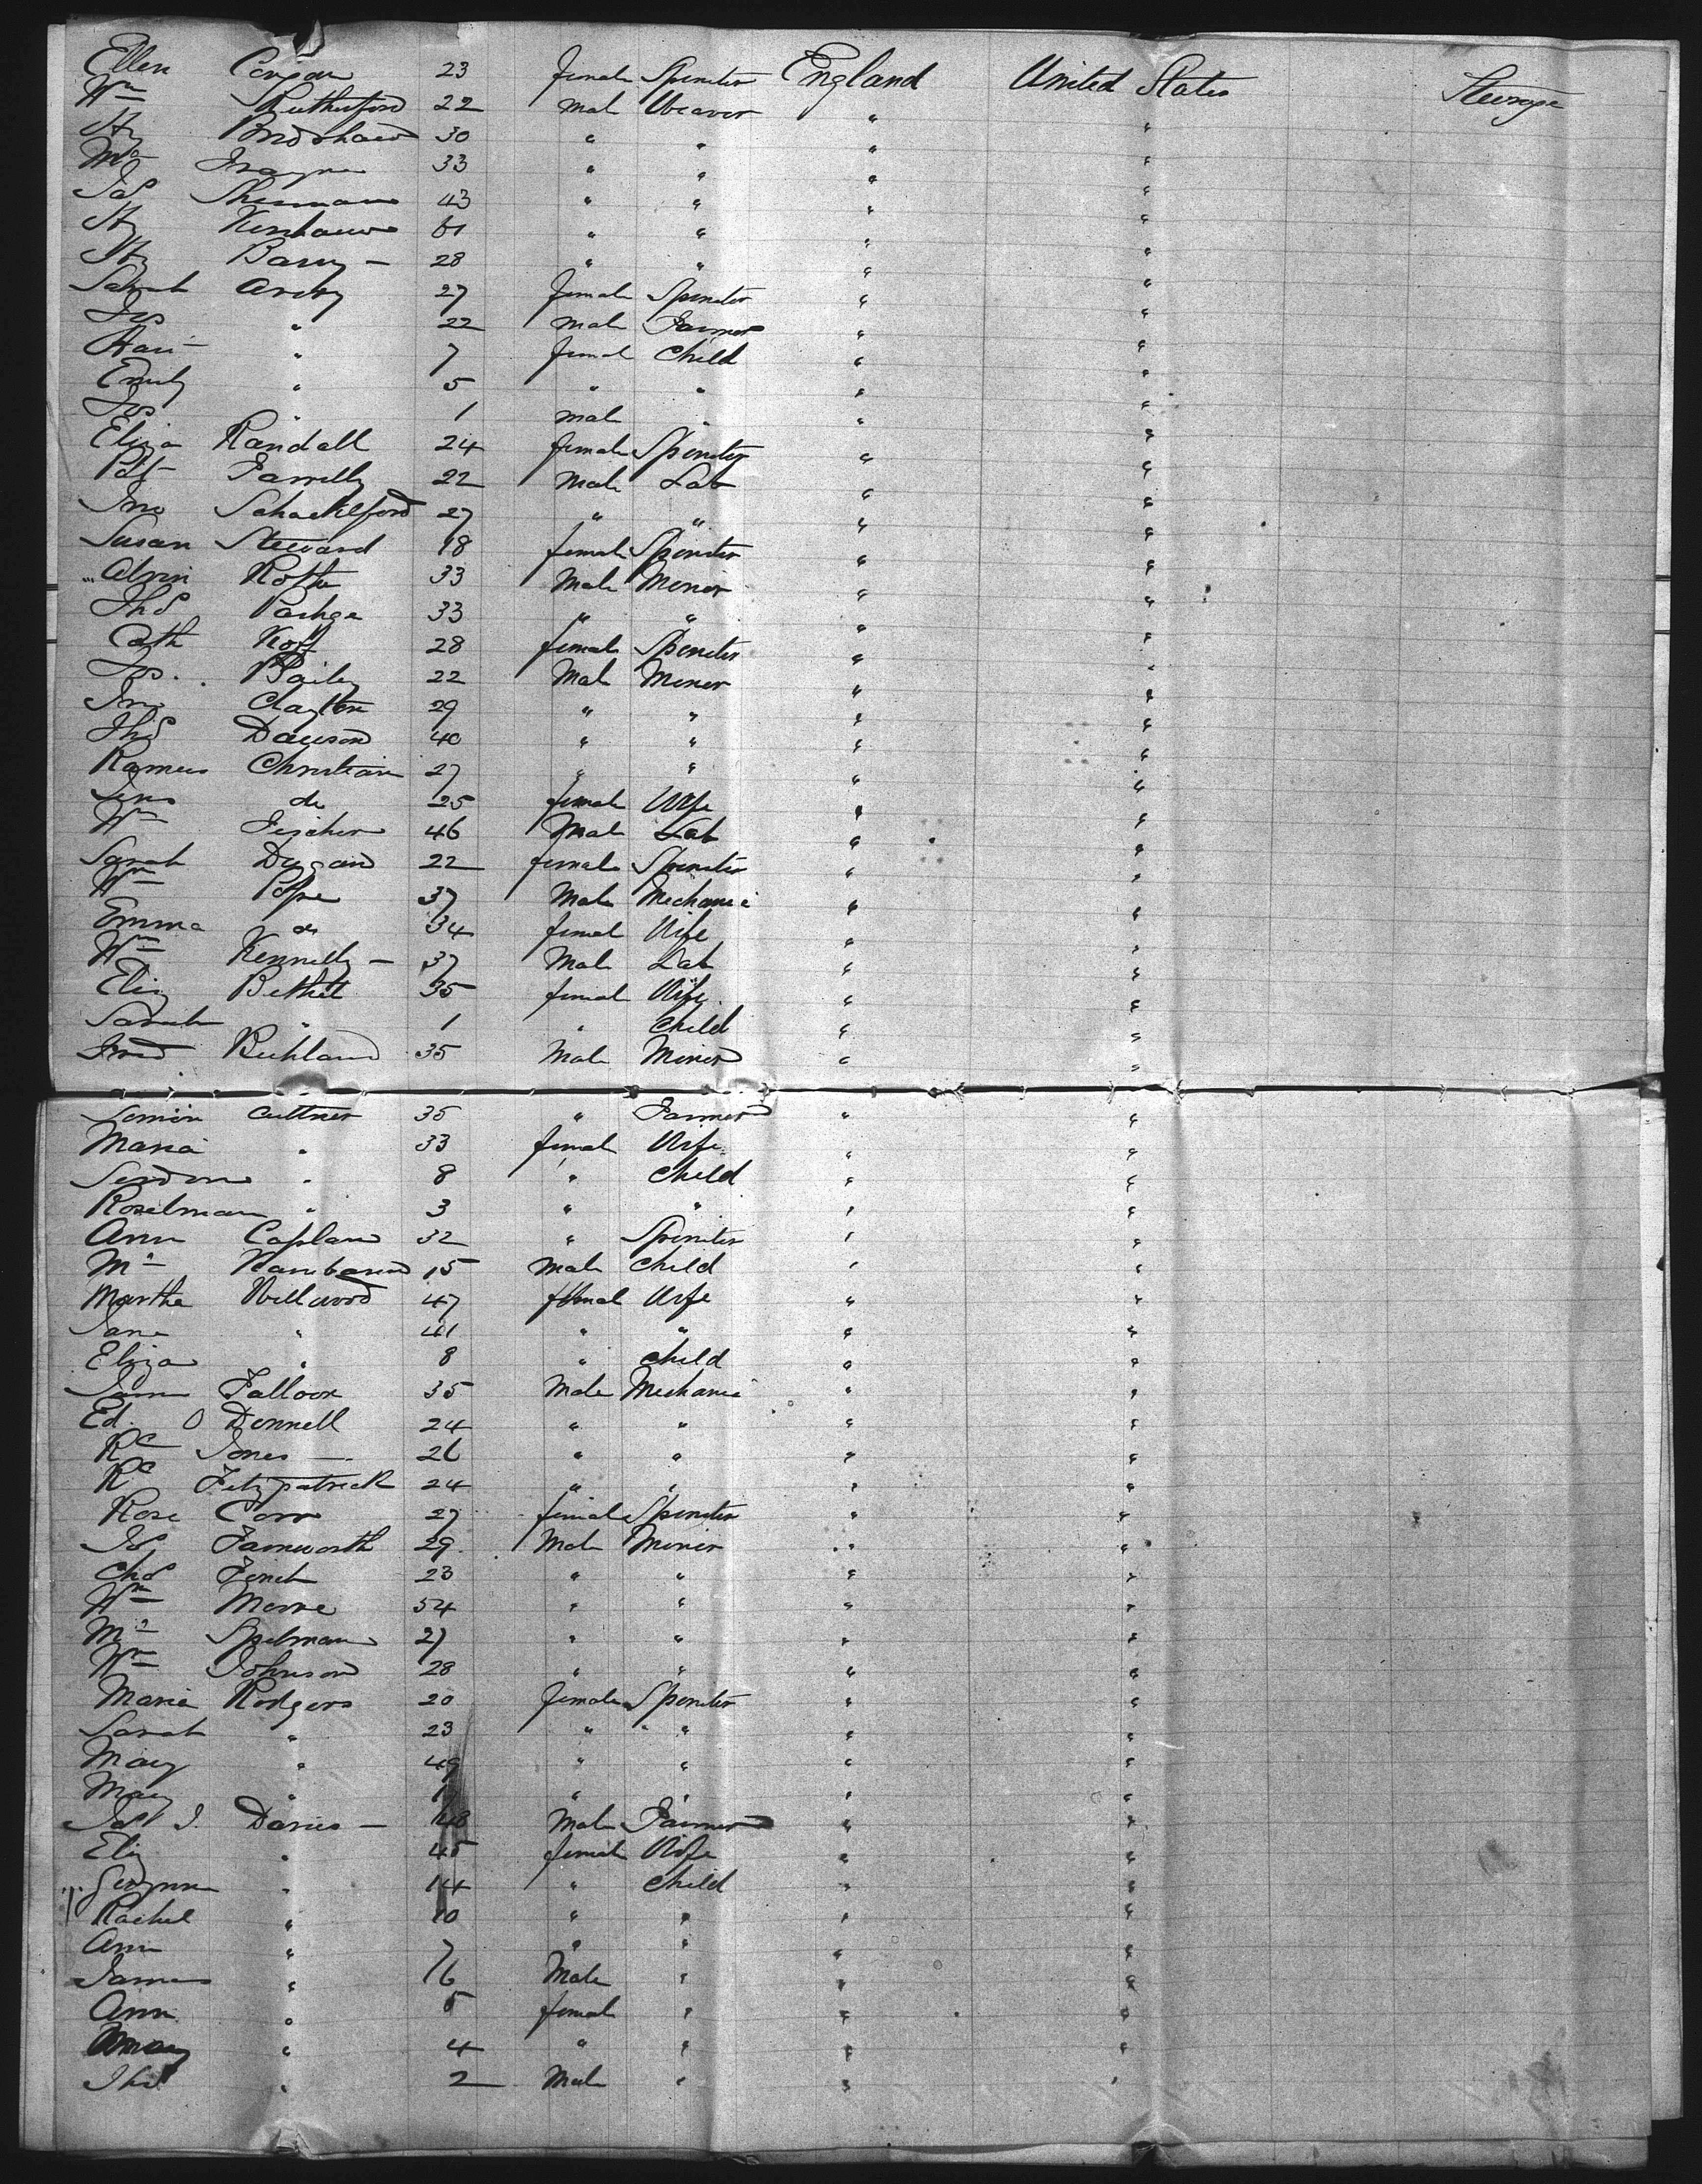 Ellen Coogan 23 female Spinster England United States Steerage
Wm Rutherford 22 male Weaver " "
Hy Bradshaw 30 " " " "
33 " " " "
Jas Sherman 43 " " " "
Hy Kershaw 61 " " " "
Hy Barry - 28 " " " "
Sarah Avery 27 female Spinster " "
Jos " 22 male Farmer " "
" 7 female Child " "
Emily " 5 " " " "
Jos " 1 male " " "
Eliza Randall 24 female Spinster " "
Pat Farrelly 22 Male Lab " "
Jno Schackelford 27 " " " "
Susan Steward 18 female Spinster " "
Alvin 33 Male Miner " "
Thos 33 " " " "
Cath 28 female Spinster " "
Jos. Bailey 22 Male Miner " "
Jno Clayton 29 " " " "
Thos Dawson 40 " " " "
Christian 27 " " " "
do 25 female Wife " "
Wm Fischer 46 Male Lab " "
Sarah Dugan 22 female Spinster " "
Wm Pope 37 Male Mechanic " "
Emma do 34 female Wife " "
Wm Kennelly - 37 Male Lab " "
Eliz Bethel 35 female Wife " "
Sarah " 1 " Child " "
35 Male Miner " "
Cuttner 35 " Farmer " "
Maria " 33 female Wife " "
" 8 " Child " "
" 3 " " " "
Ann Caplan 32 " Spinster " "
15 Male Child " "
Martha Wellwood 47 female Wife " "
Jane " 41 " " " "
Eliza " 8 " Child " "
Falloon 35 Male Mechanic " "
Ed. O Donnell 24 " " " "
Rd Jones - 26 " " " "
Rd Fitzpatrick 24 " " " "
Rose Carr 27 female Spinster " "
Js Farnworth 29 Male Miner " "
Chs Finch 23 " " " "
Wm 54 " " " "
Spelman 27 " " " "
Wm Johnson 28 " " " "
Maria Rodgers 20 female Spinster " "
Sarah " 23 " " " "
Mary " 49 " " " "
Mary " " " " "
Jas J. Davies - 48 Male Farmer " "
Eliz " 45 female Wife " "
" 14 " Child " "
Rachel " 10 " " " "
Ann " 7 " " " "
James " Male " " "
Ann " 5 female " " "
Mary " 4 " " " "
Thos " 2 Male " " "